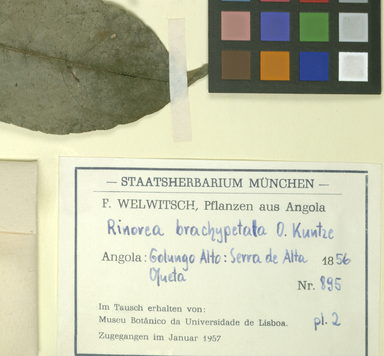 — STAATSHERBARIUM MÜNCHEN —
F. WELWITSCH, Pflanzen aus Angola
Rinorea brachypetala O. Kuntze
Angola: Golungo Alto: Serra de Alta 1856
Queta Nr. 895
Im Tausch erhalten von:
Museu Botânico da Universidade de Lisboa. pl. 2
Zugegangen im Januar 1957